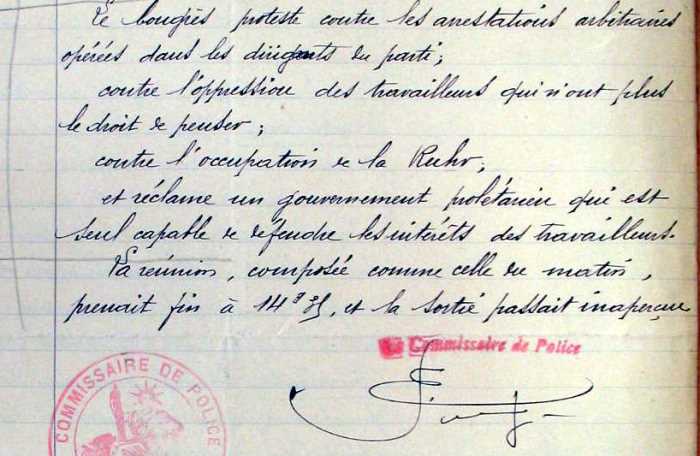 Le Congrès proteste contre les arrestations arbitraires
opérées dans les dirigeants du parti;
contre l'oppression des travailleurs qui n'ont plus
le droit de penser;
contre l'occupation de la Ruhr;
et réclame un gouvernement prolétarien qui est
seul capable de défendre les intérêts des travailleurs.
La réunion, composée comme celle du matin,
prenait fin à 14 et la sortie passait inaperçue
Le Commissaire de Police
COMMISSAIRE DE POLICE